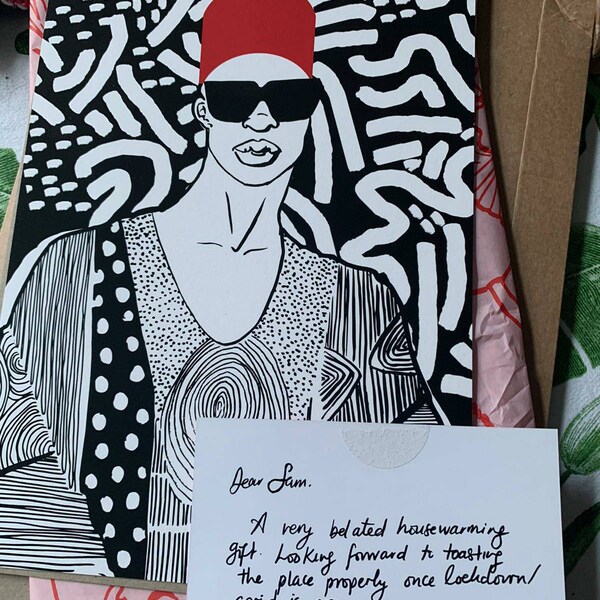 Dear Sam.
A very belated housewarming
gift. Looking forward to toasting
the place properly once lockdown/